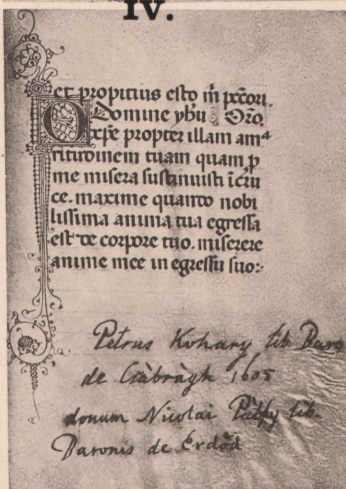 IV.
et propitius esto m̄ pccōri.
Domine yhu Oro.
xp̄e propter illam am⁴
ritudinem tuam quam p
me misera sustinuisti ī cru
ce. maxime quanto nobi
lissima anima tua egressa
est de corpore tuo. miserere
anime mee in egressu suo:
Petrus Kohary lib Baro
de Csàbràgh 1605
donum Nicolai Pálfy lib.
Baronis de Erdőd